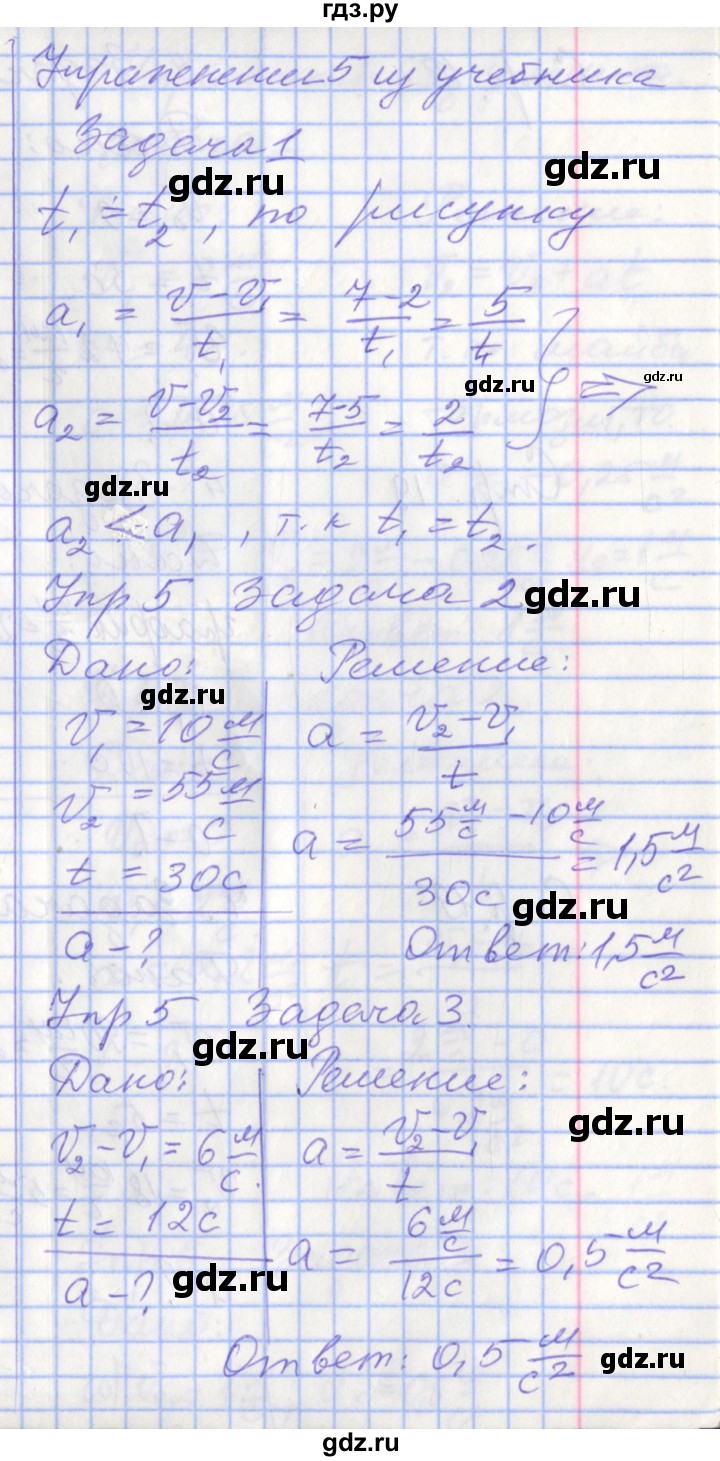 гдз.ру
Упражнения 5 из учебника
Задача 1
gdz.ru
gdz.ru
t₁ = t₂, по рисунку
a₁ = (v-v₁)/t₁ = (7-2)/t₁ = 5/t₁
gdz.ru
gdz.ru
a₂ = (v-v₂)/t₂ = (7-5)/t₂ = 2/t₂ } =>
gdz.ru
a₂ < a₁, т.к t₁ = t₂.
Упр 5 Задача 2
gdz.ru
Дано: Решение:
gdz.ru
v₁ = 10 м/с a = (v₂-v₁)/t
v₂ = 55 м/с
t = 30с a = (55 м/с - 10 м/с)/30с = 1,5 м/с²
gdz.ru
a - ? Ответ: 1,5 м/с²
Упр 5 Задача 3.
gdz.ru
Дано: Решение:
gdz.ru
v₂-v₁ = 6 м/с. a = (v₂-v₁)/t
t = 12с
a - ? a = (6 м/с)/12с = 0,5 м/с²
gdz.ru
Ответ: 0,5 м/с²
gdz.ru
gdz.ru